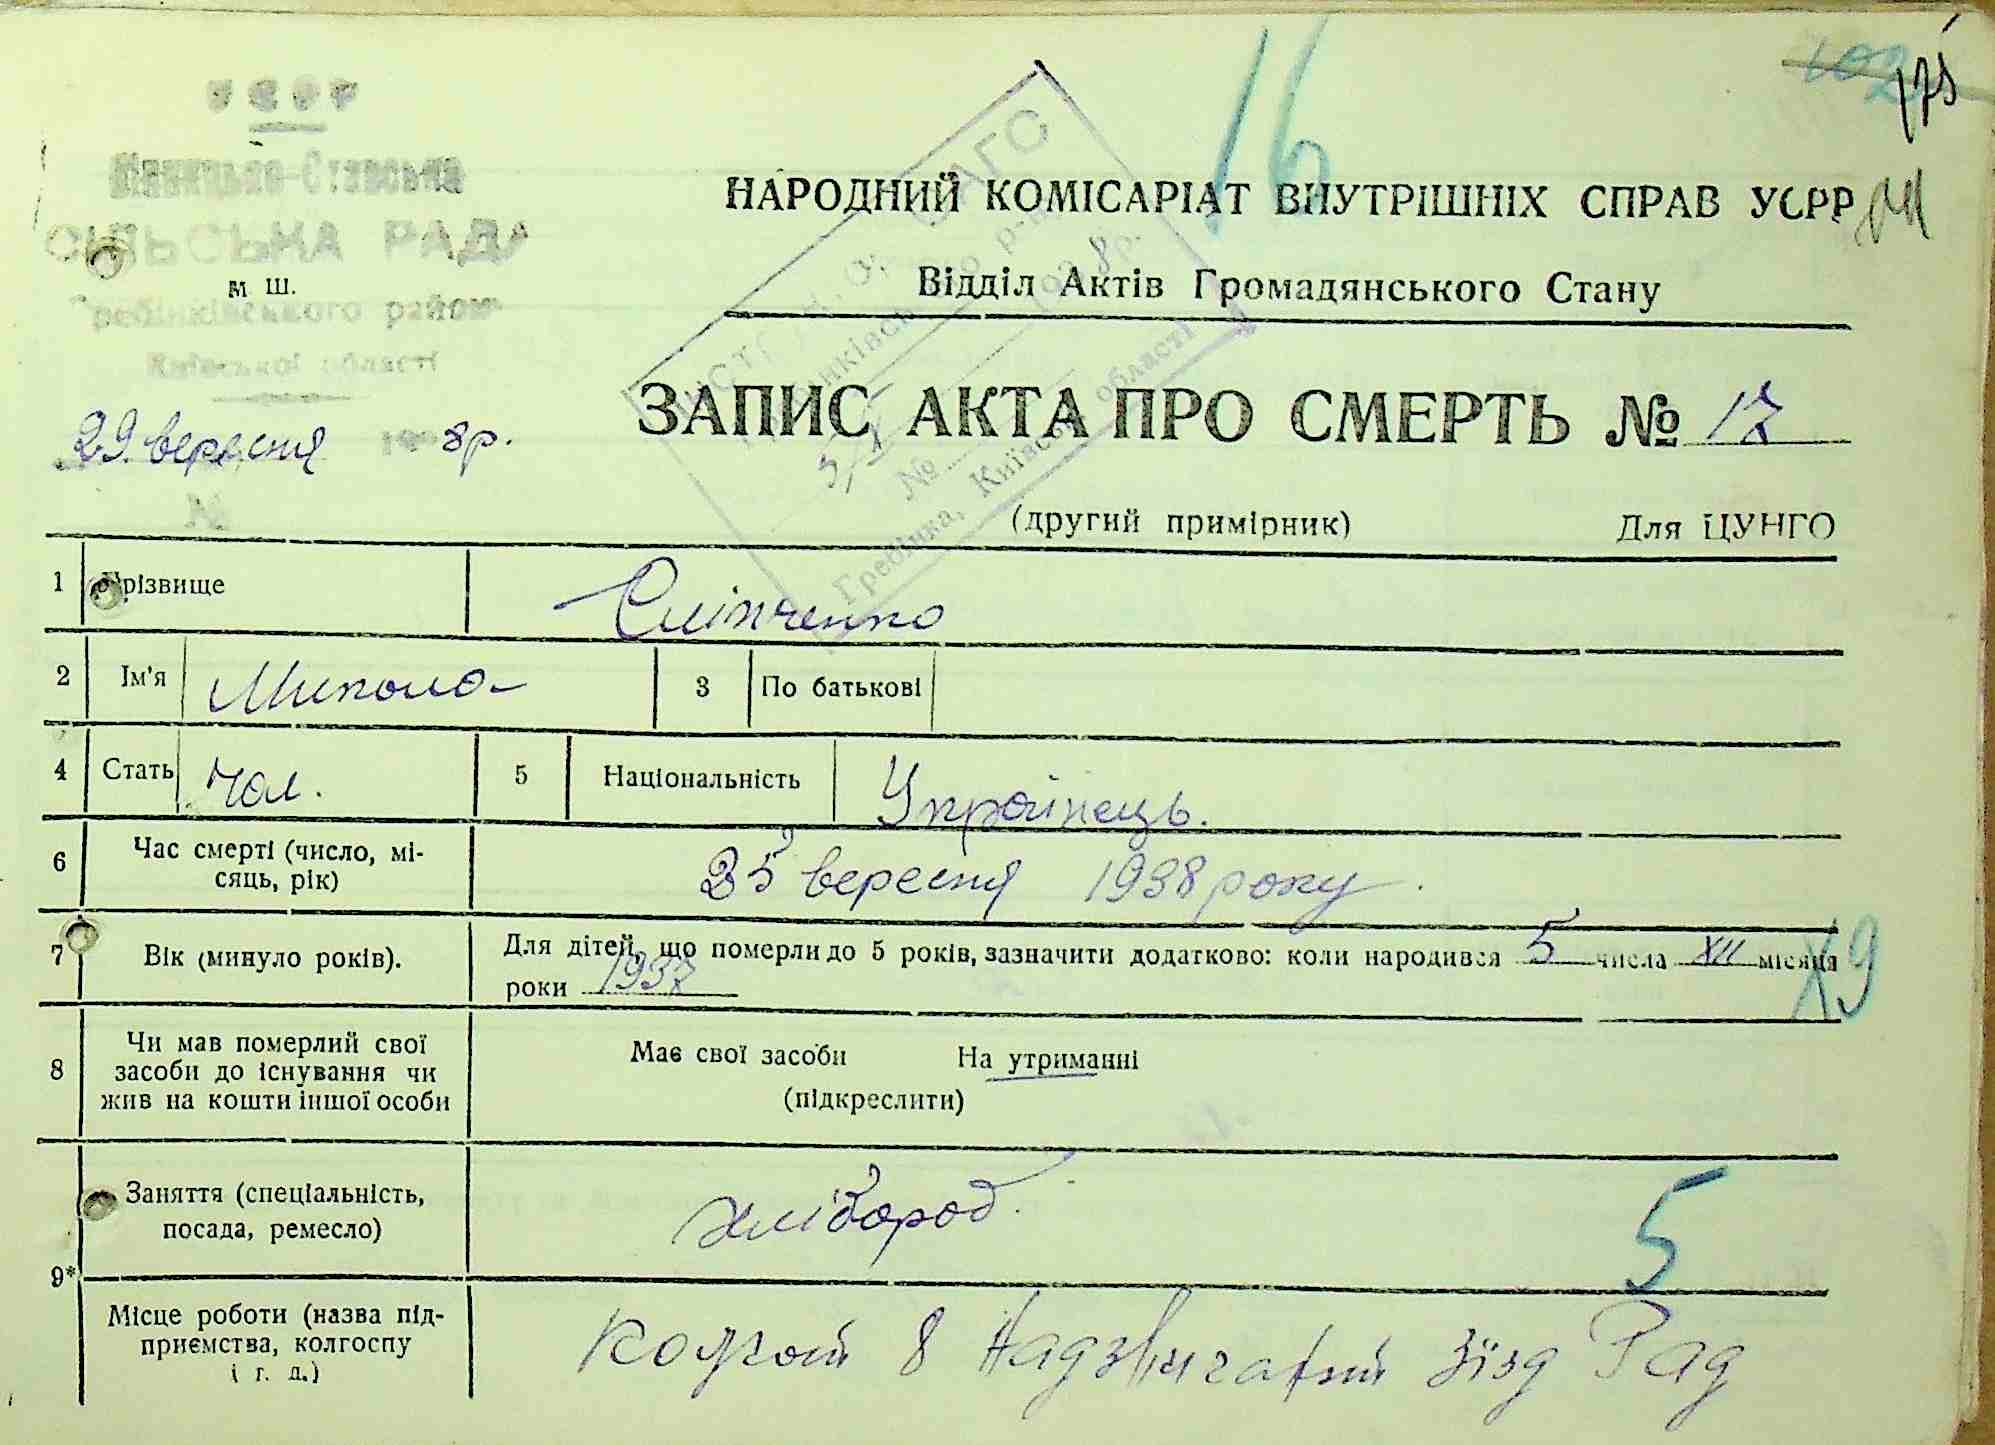 16
102
175
УСРР
Вінницько-Ставська
СІЛЬСЬКА РАДА
м ш.
Гребінківського району
Київської області
29 вересня 1938р.
№
НАРОДНИЙ КОМІСАРІАТ ВНУТРІШНІХ СПРАВ УСРР
Відділ Актів Громадянського Стану
ЗАПИС АКТА ПРО СМЕРТЬ № 17
(другий примірник) Для ЦУНГО
ЗАГС
1938р.
№
Гребінка, Київської області
1 Прізвище Сліпченко
2 Ім'я Микола 3 По батькові
4 Стать Чол. 5 Національність Українець.
6 Час смерті (число, мі-
сяць, рік) 25 вересня 1938 року.
7 Вік (минуло років). Для дітей, що померли до 5 років, зазначити додатково: коли народився 5 числа XII місяця
роки 1937
X9
8 Чи мав померлий свої
засоби до існування чи
жив на кошти іншої особи
Має свої засоби На утриманні
(підкреслити)
9* Заняття (спеціальність,
посада, ремесло) хлібороб.
5
Місце роботи (назва під-
приємства, колгоспу
і т. д.)
Колгосп 8 Надзвичайний Зїзд Рад